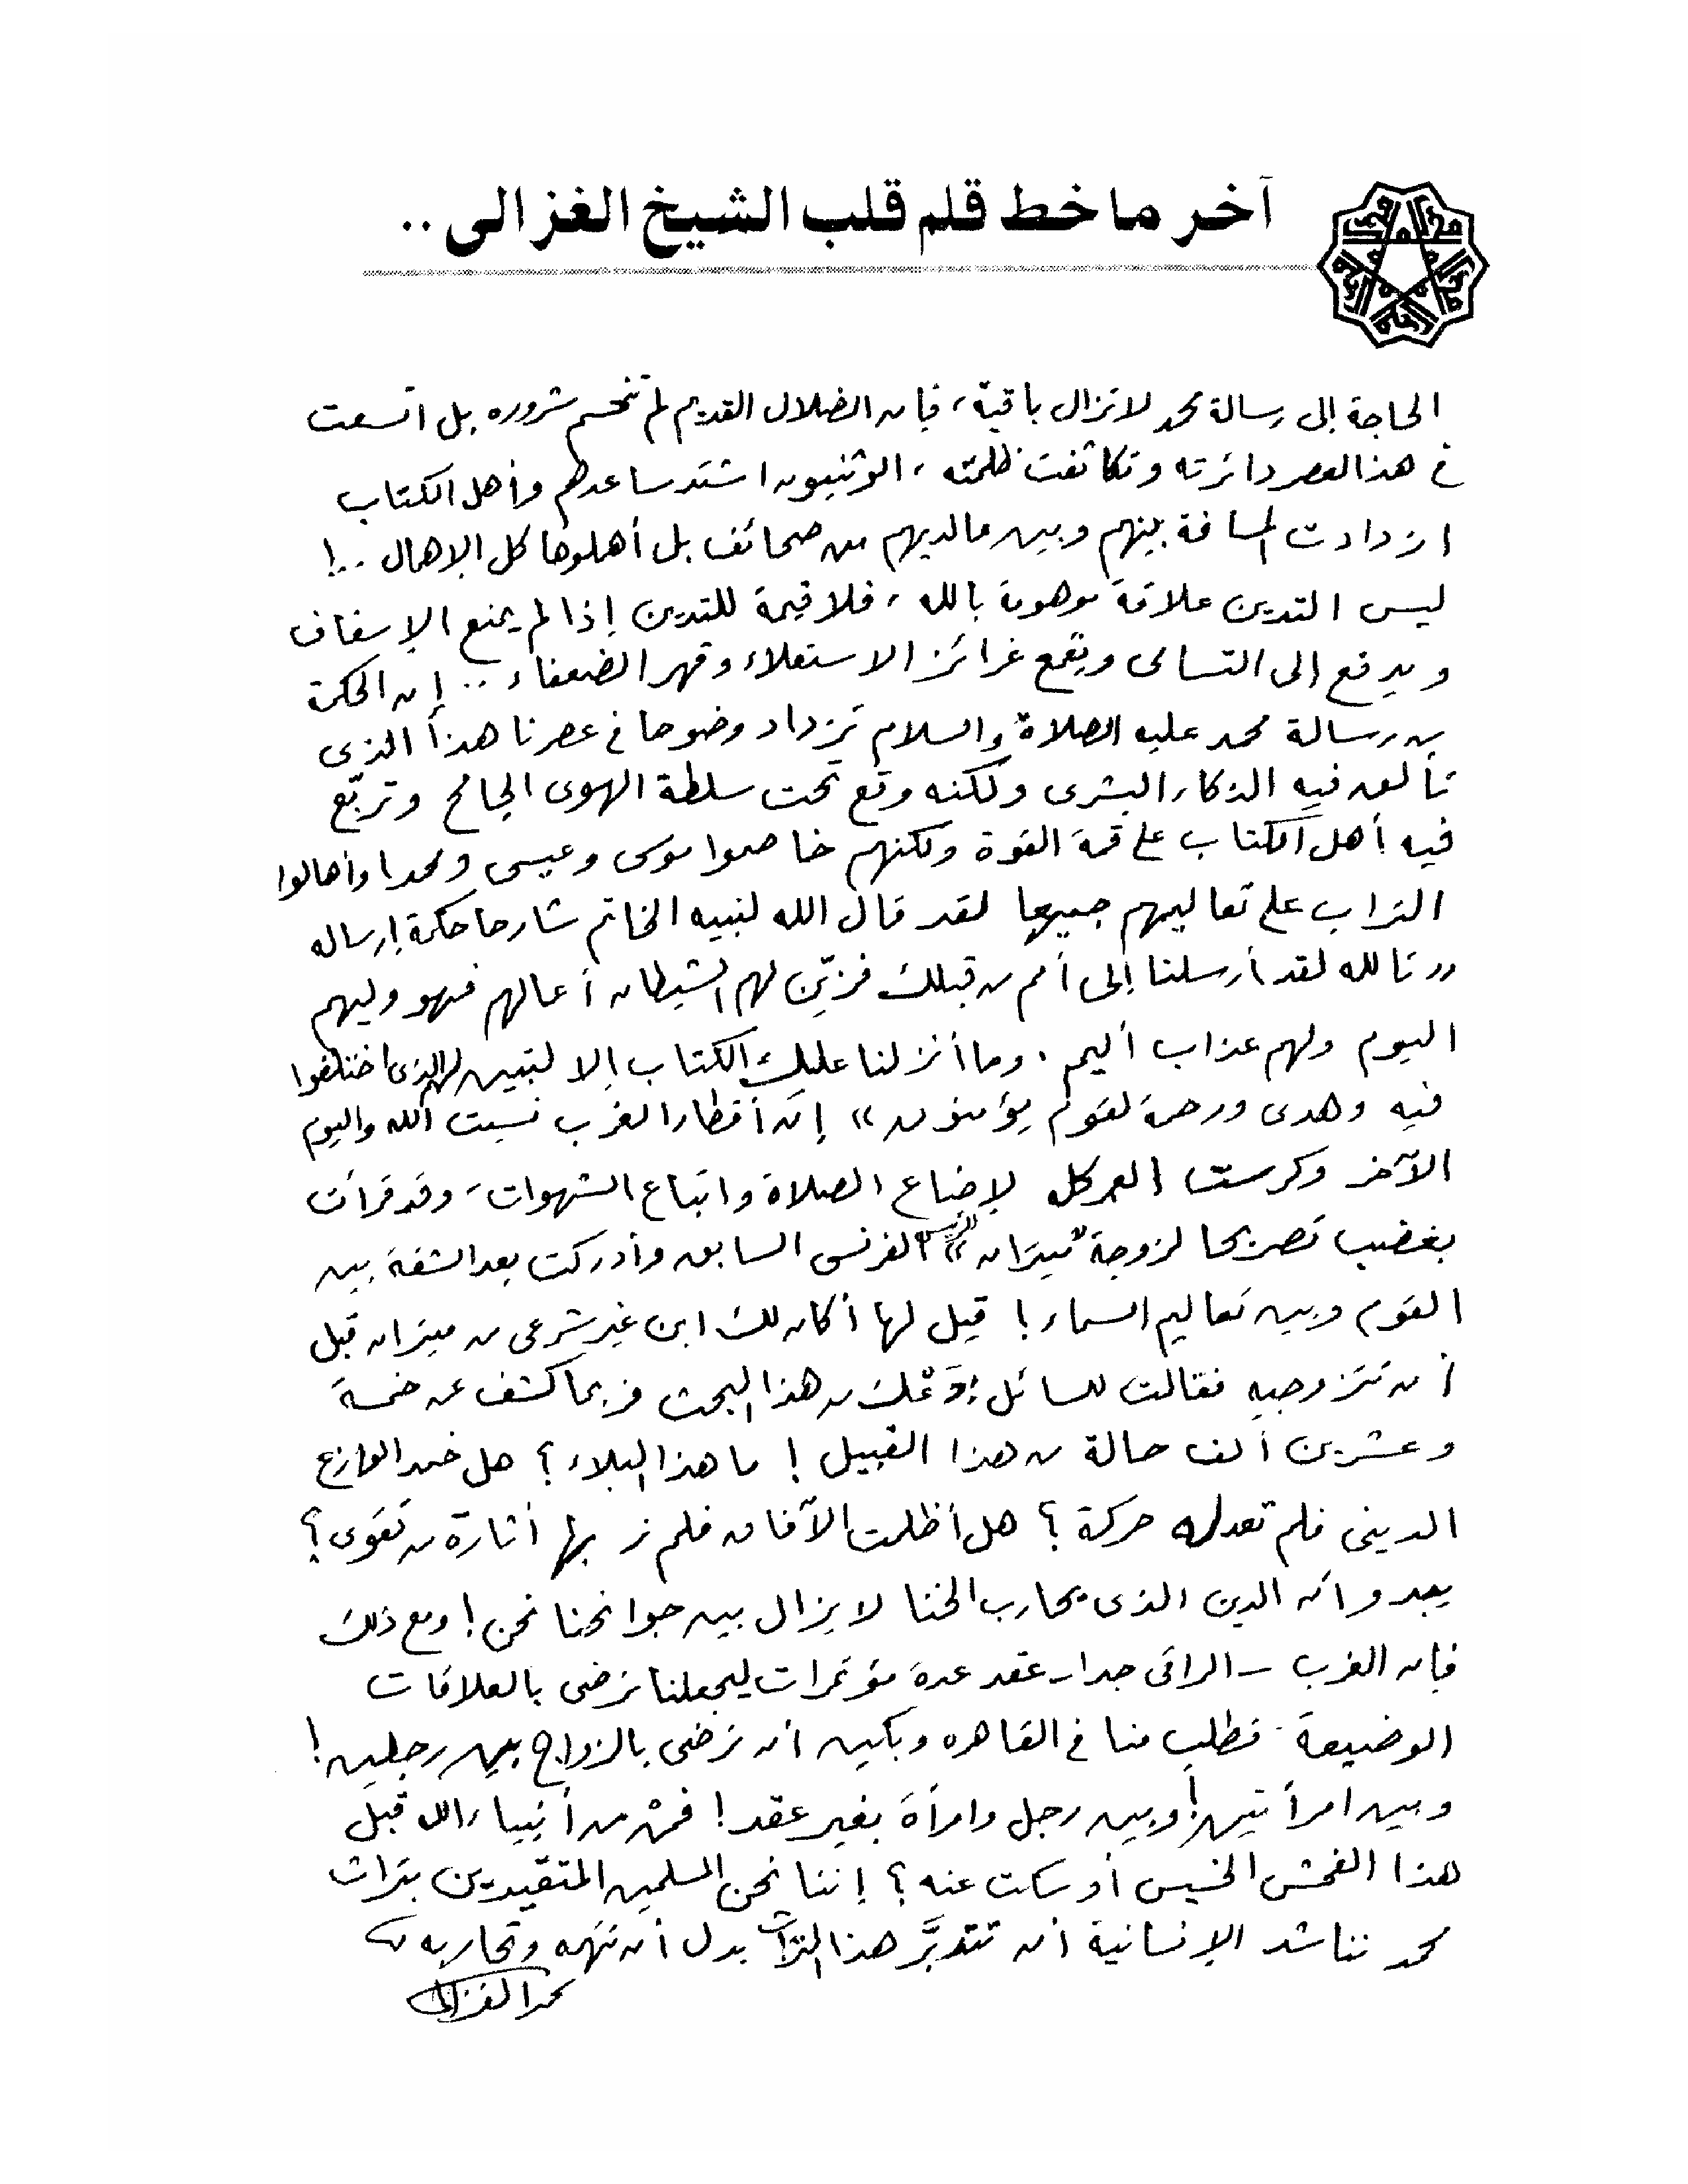 آخر ما خط قلم قلب الشيخ الغزالى ..
الحاجة إلى رسالة محمد لا تزال باقية، فإن الضلال القديم لم تنحسم شروره بل اتسعت
في هذا العصر دائرته وتكاثفت ظلمته، الوثنيون اشتد ساعدهم وأهل الكتاب
ازدادت المسافة بينهم وبين مالديهم من صحائف بل أهملوها كل الإهمال ..!
ليس التدين علاقة موهومة بالله، فلا قيمة للتدين إذا لم يمنع الإسفاف
ويدفع إلى التسامى ويقمع غرائز الاستعلاء وقهر الضعفاء .. إن الحكمة
من رسالة محمد عليه الصلاة والسلام تزداد وضوحا في عصرنا هذا الذى
تألق فيه الذكاء البشرى ولكنه وقع تحت سلطة الهوى الجامح وتربّع
فيه أهل الكتاب على قمة القوة ولكنهم خاصموا موسى وعيسى ومحمدا وأهالوا
التراب على تعاليمهم جميعها لقد قال الله لنبيه الخاتم شارحا حكمة إرساله
«تالله لقد أرسلنا إلى أمم من قبلك فزيّن لهم الشيطان أعمالهم فهو وليهم
اليوم ولهم عذاب أليم . وما أنزلنا عليك الكتاب إلا لتبين لهم الذى اختلفوا
فيه وهدى ورحمة لقوم يؤمنون» إن أقطار الغرب نسيت الله واليوم
الآخر وكرست العمر كله لإضاع الصلاة واتباع الشهوات، وقد قرأت
بغضب تصريحا لزوجة "ميتران" الرئيس الفرنسى السابق وأدركت بعد الشقة بين
القوم وبين تعاليم السماء! قيل لها أكان لك ابن غير شرعى من ميتران قبل
أن تتزوجيه فقالت للسائل: دَعْك من هذا البحث فربما كشف عن خمسة
وعشرين ألف حالة من هذا القبيل! ما هذا البلاء؟ هل خمد الوازع
الدينى فلم تعد له حركة؟ هل أظلمت الآفاق فلم نر بها أثارة من تقوى؟
يبدو أن الدين الذى يحارب الخنا لا يزال بين جوانحنا نحن! ومع ذلك
فإن الغرب – الراقى جدا – عقد عدة مؤتمرات ليجعلنا نرضى بالعلاقات
الوضيعة فطلب منا في القاهره وبكين أن نرضى بالزواج بين رجلين!
وبين امرأتين! وبين رجل وامرأة بغير عقد! فمنْ من أنبياء الله قبل
هذا الفحش الخسيس أو سكت عنه؟ إننا نحن المسلمين المتقيدين بتراث
محمد نناشد الإنسانية أن تتدبَّر هذا التراث بدل أن تتهمه وتحاربه
محمد الغزالى